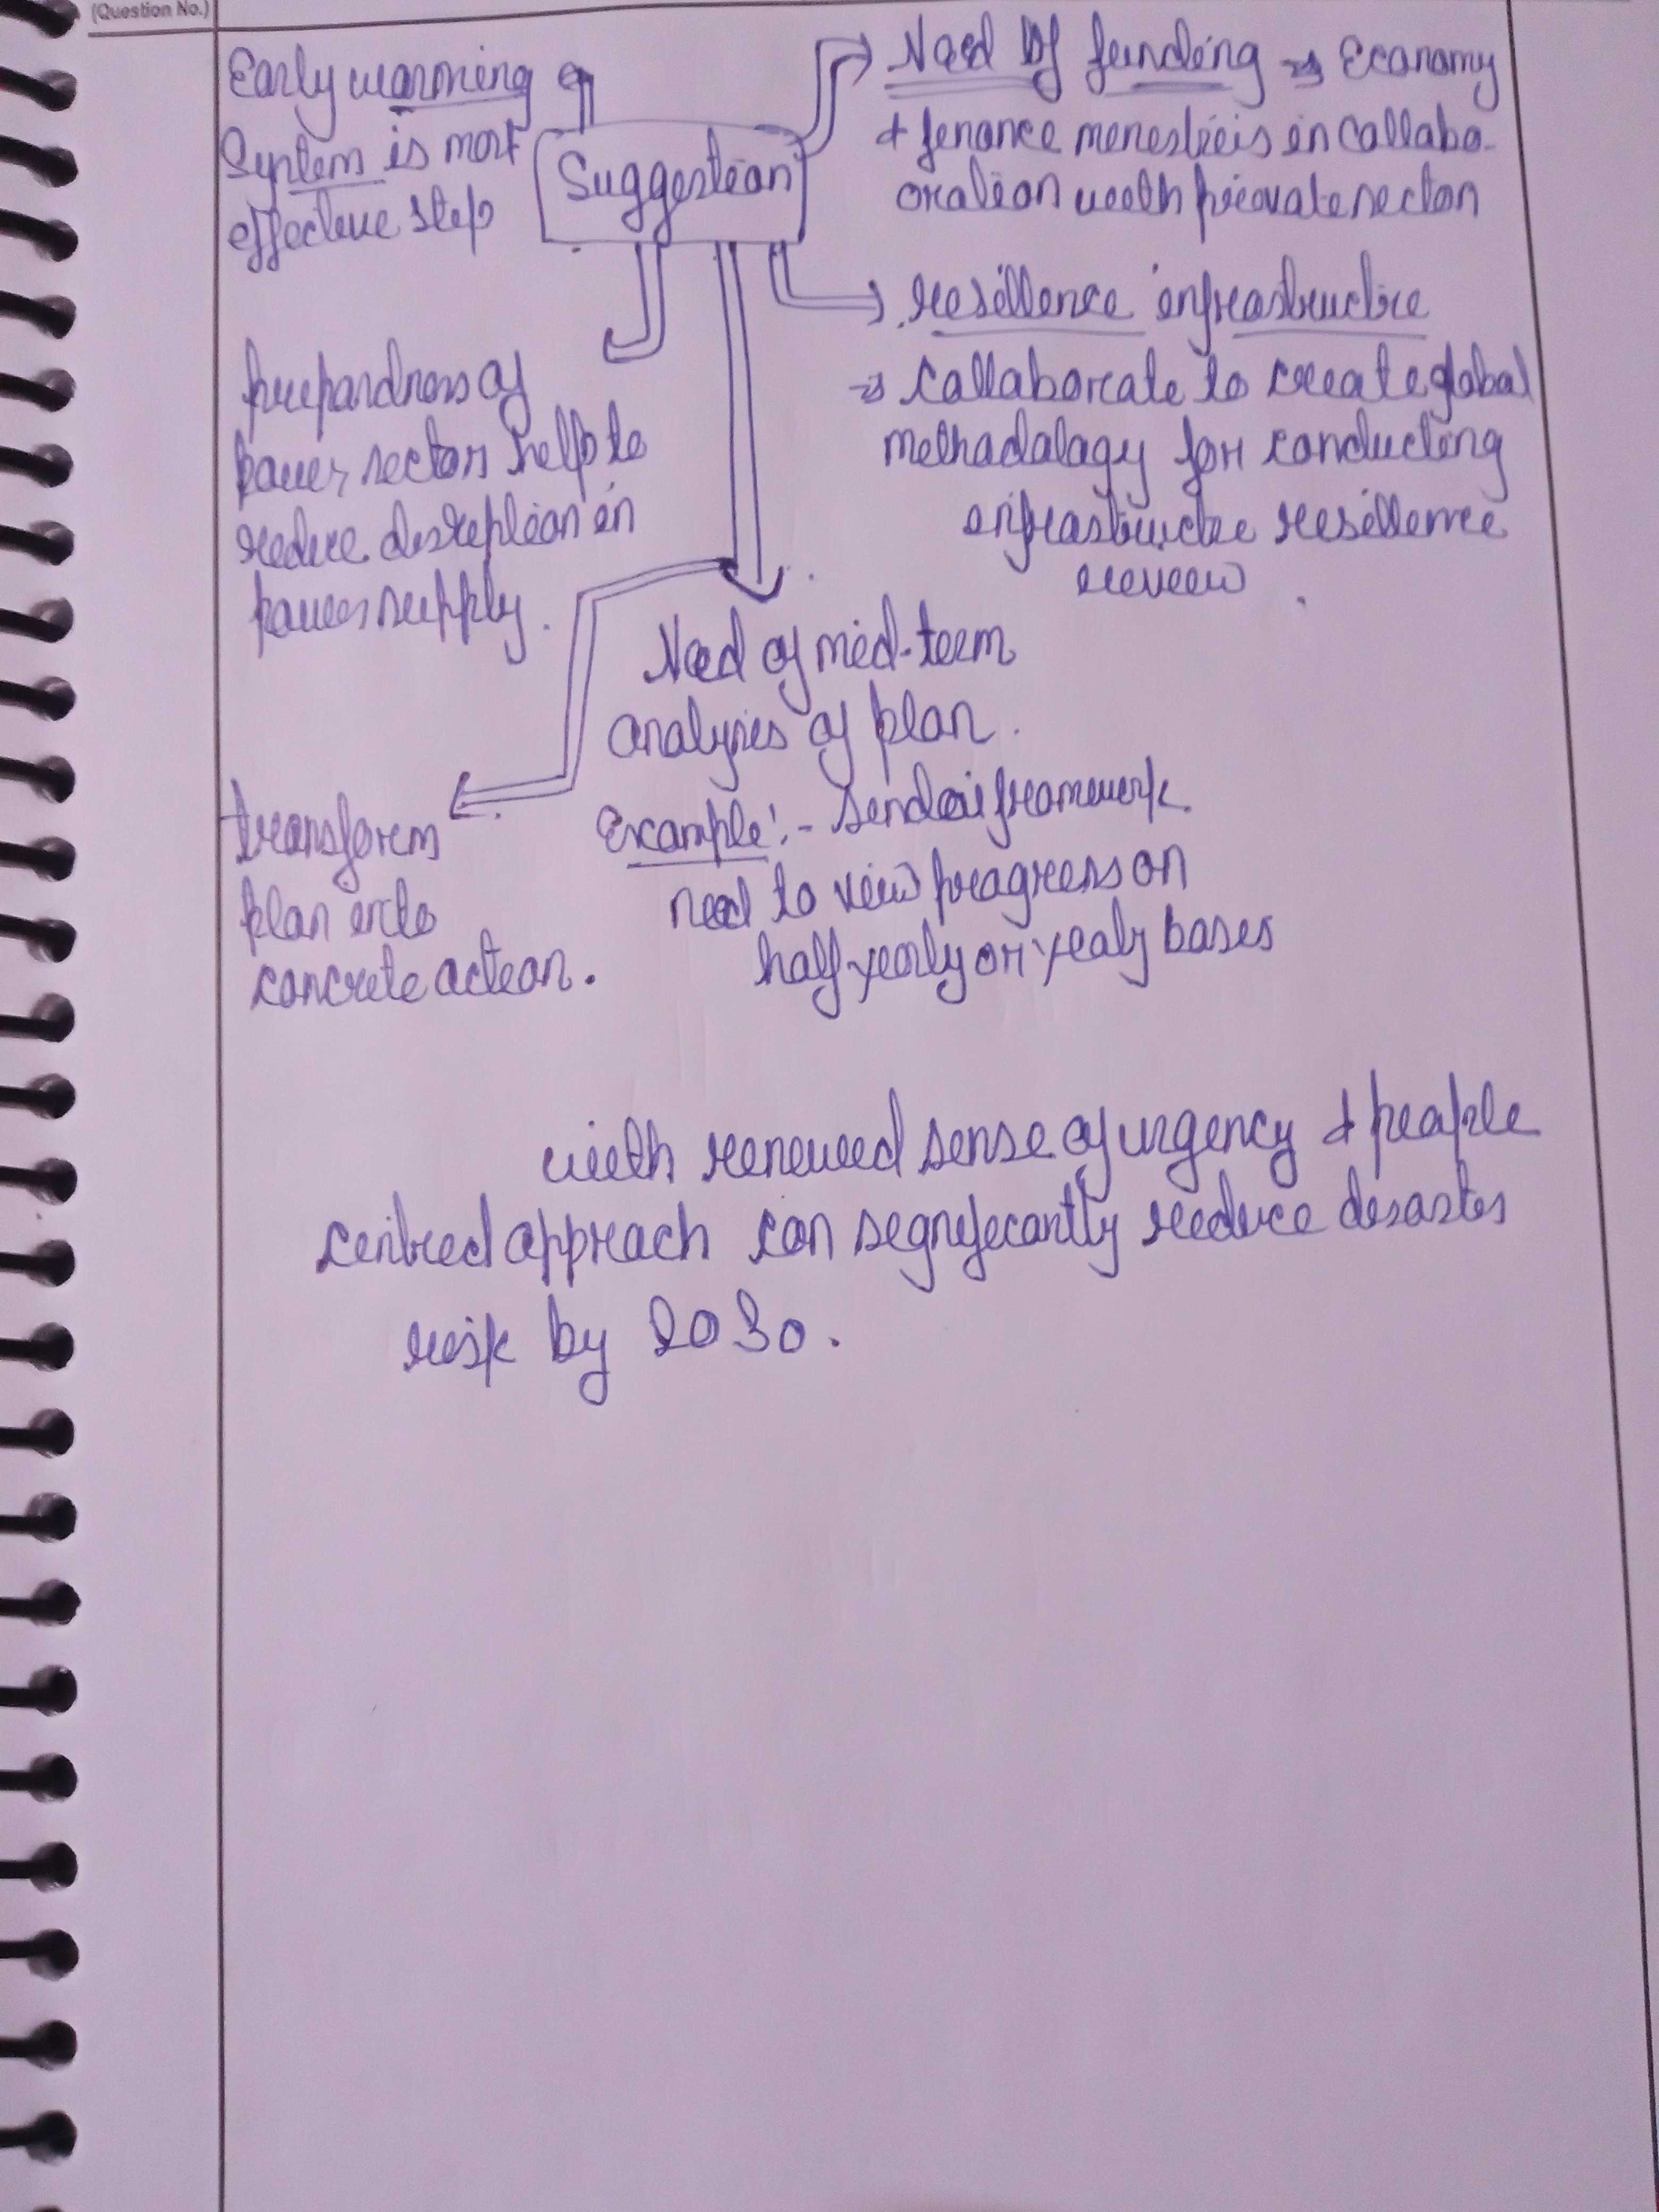 (Question No.)
Suggestion
Early warning
System is most
effective step
Need of funding ⇒ Economy
+ finance ministries in collabo-
oration with private sector
resillence infrastructure
⇒ Collaborate to create global
methodology for conducting
infrastructre resillence
review
prepardness of
power sector help to
reduce disreption in
power supply.
Need of mid-term
analysis of plan.
Example:- Sendai framework.
need to view progress on
half yearly or yealy bases
transform
plan into
concrete action.
with renewed sense of urgency + people
centred approach can significantly reduce disaster
risk by 2030.